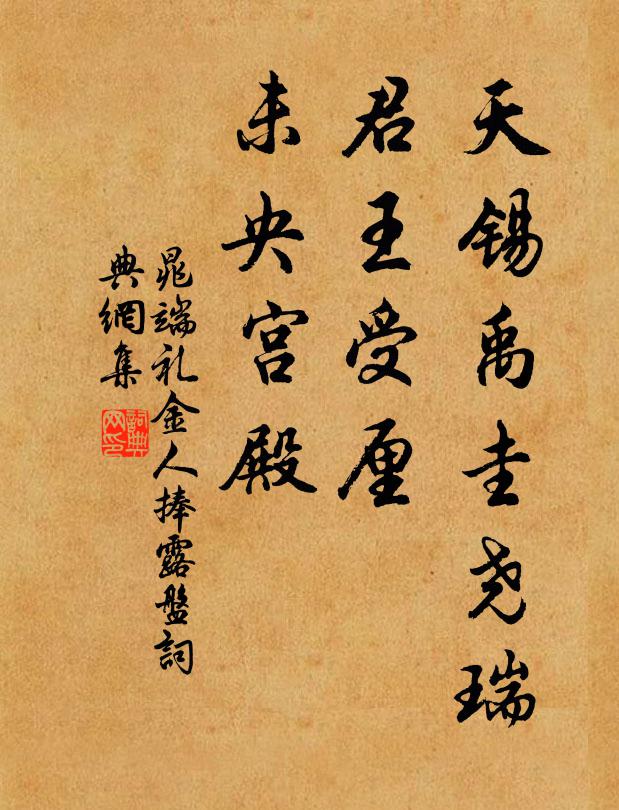 天锡禹圭尧瑞
君王受厘
未央宫殿
晁端礼金人捧露盘詞
典網集
詞典网印